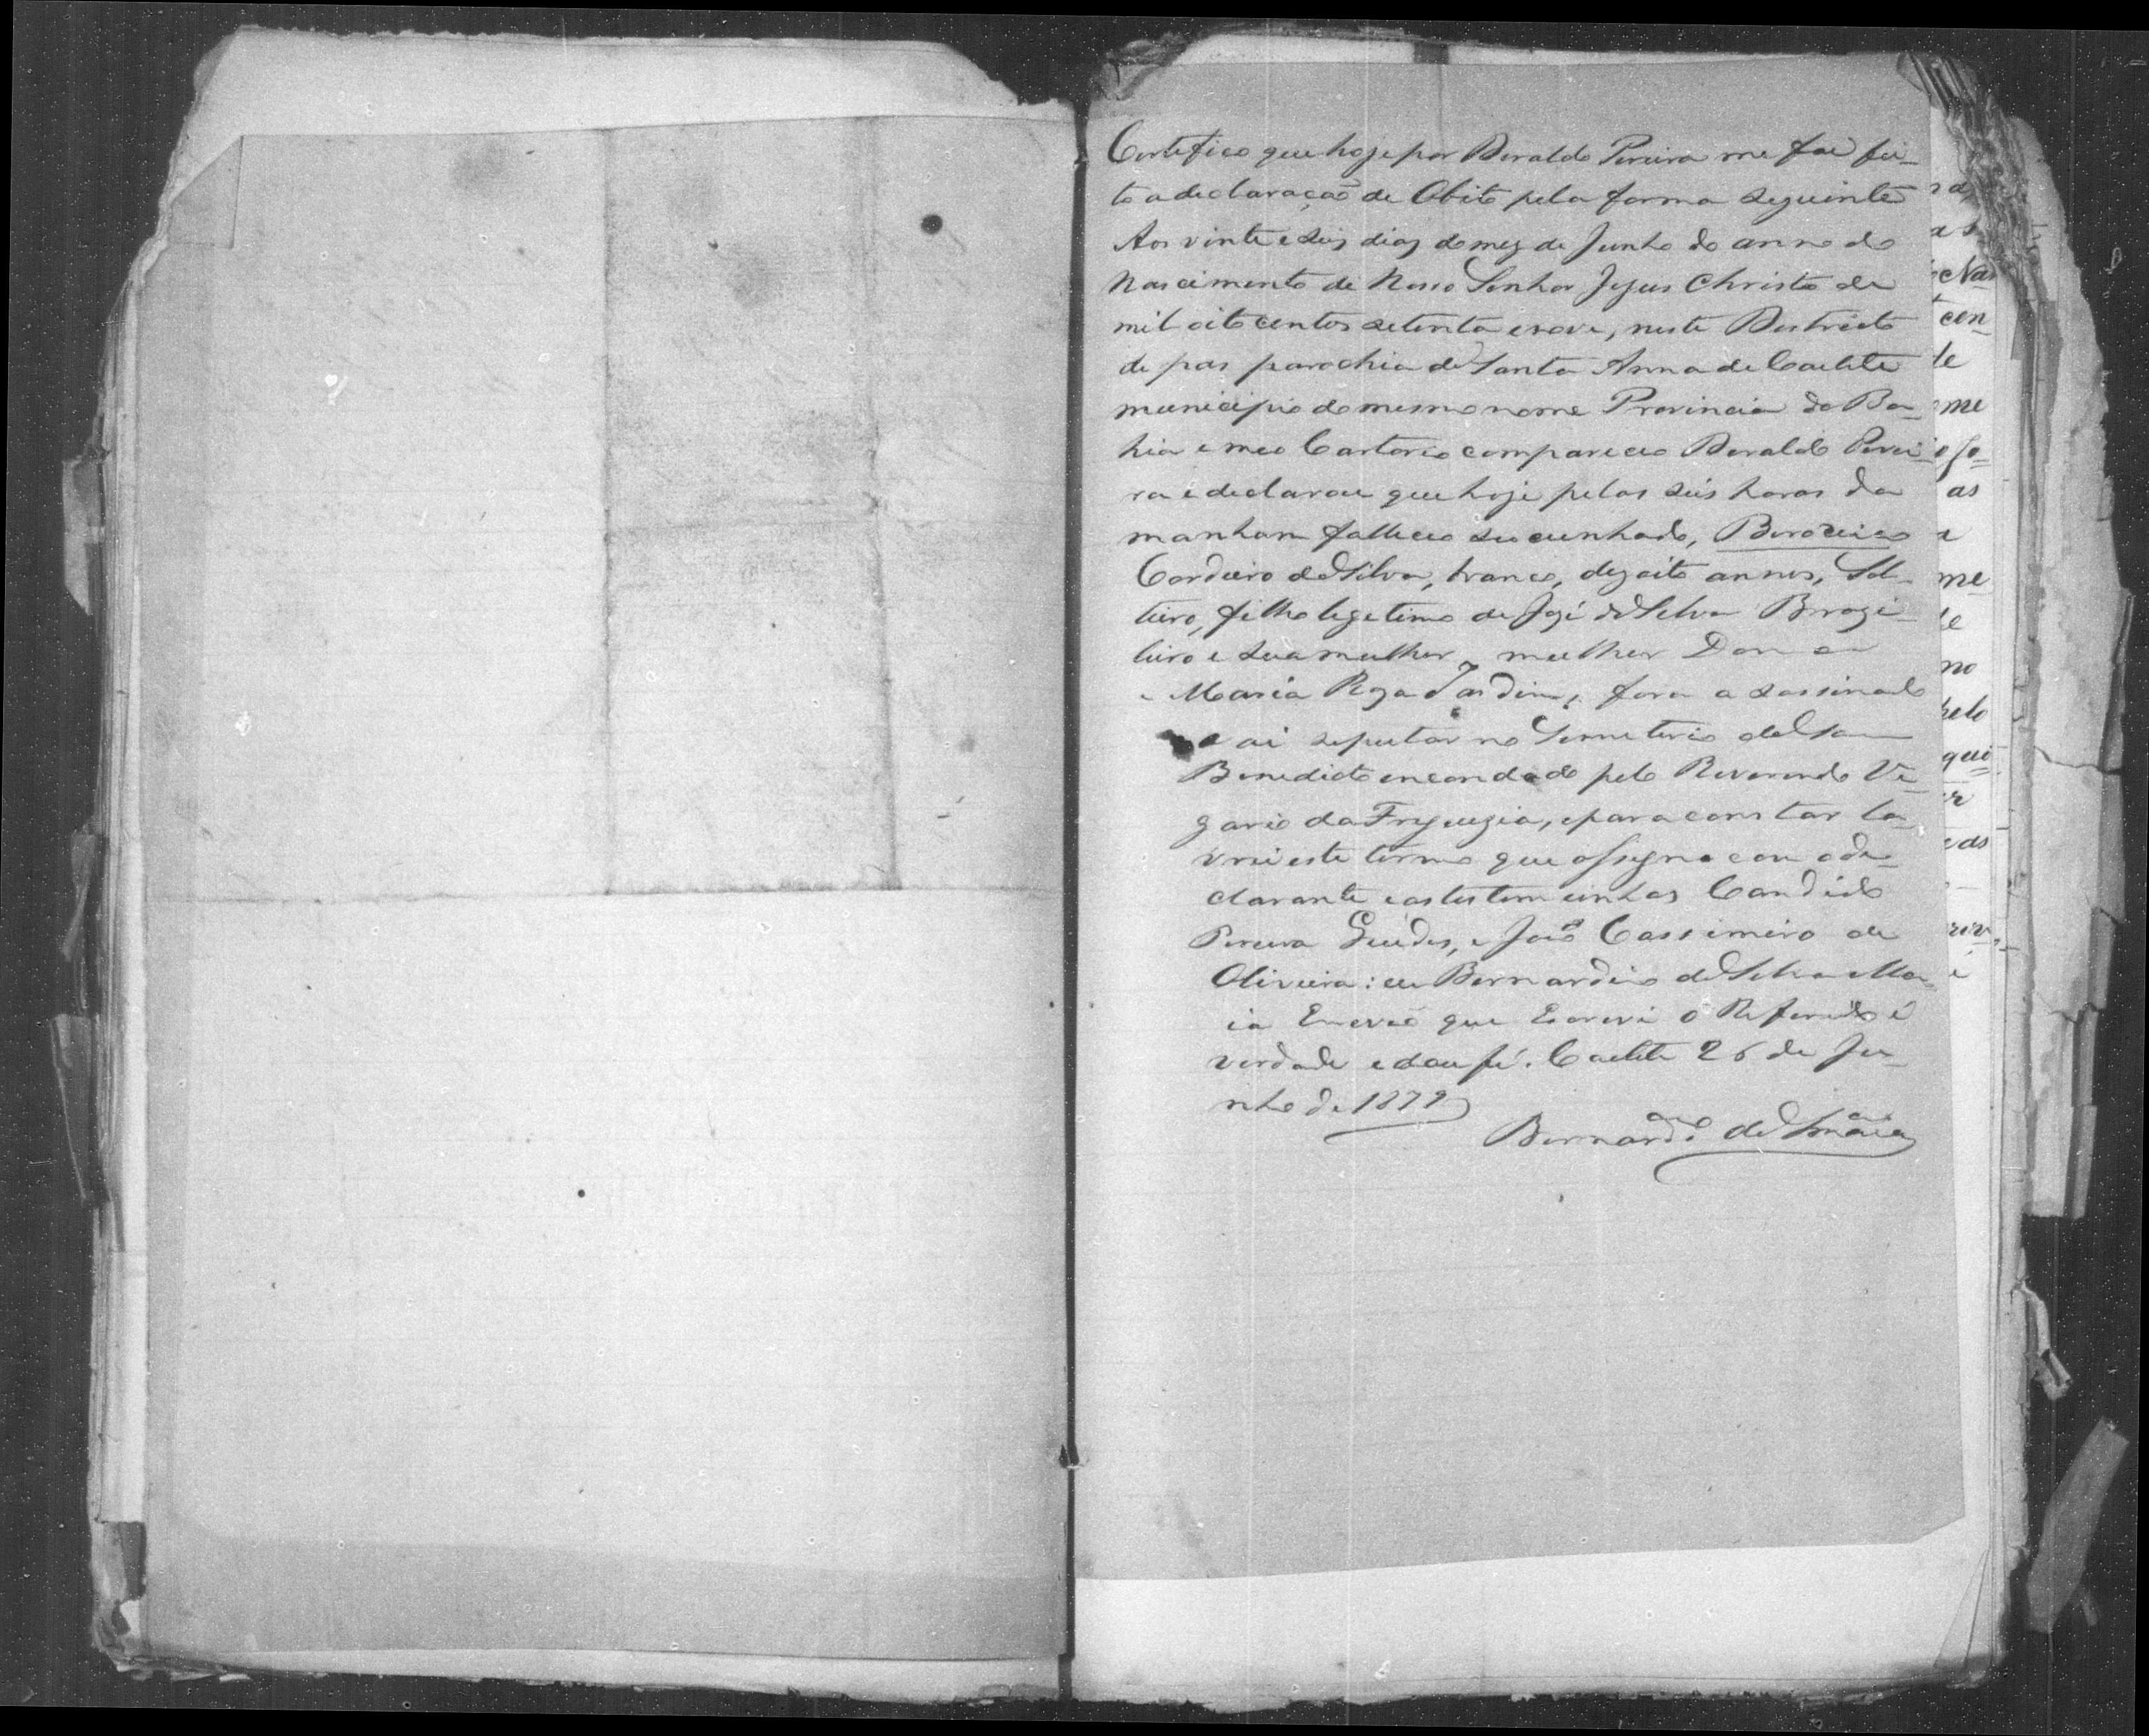 Certefico que hoje por Beraldo Pereira me foi fei-
to a declaração de Obito pela forma seguinte
Aos vinte e seis dias do mez de Junho do anno do
Nascimento de Nosso Senhor Jesus Christo de
mil oito centos setenta e nove, neste Destricto
de pas parochia de Santa Anna de Caetete
municipio do mesmo nome Provincia da Ba-
hia e meo Cartorio compareceo Beraldo Perei-
ra e declarou que hoje pelas seis horas da
manham falleceo seo cunhado,
Cordeiro da Silva, branco, dezoito annos, Sol-
teiro, filho legetimo de José da Silva Brazi-
leiro e sua mulher mulher Dona
Maria Roza Jardim, fora assassinado
e vai sepultar no Semeterio de Sam
Benedicto encondado pelo Reverendo Vi-
gario da Freguezia, e para constar la-
vrei este termo que assigno com o de-
clarante e as testemunhas Candido
Pereira Guedes, e João Cassimiro de
Oliveira: eu Bernardino da Silva Ma-
ia Escrivão que Escrevi o Referido é
verdade e dou fé. Caetete 26 de Ju-
nho de 1879
Bernardo da Sª Maia
Nas
cen-
de
me
as
me
no
pelo
qui-